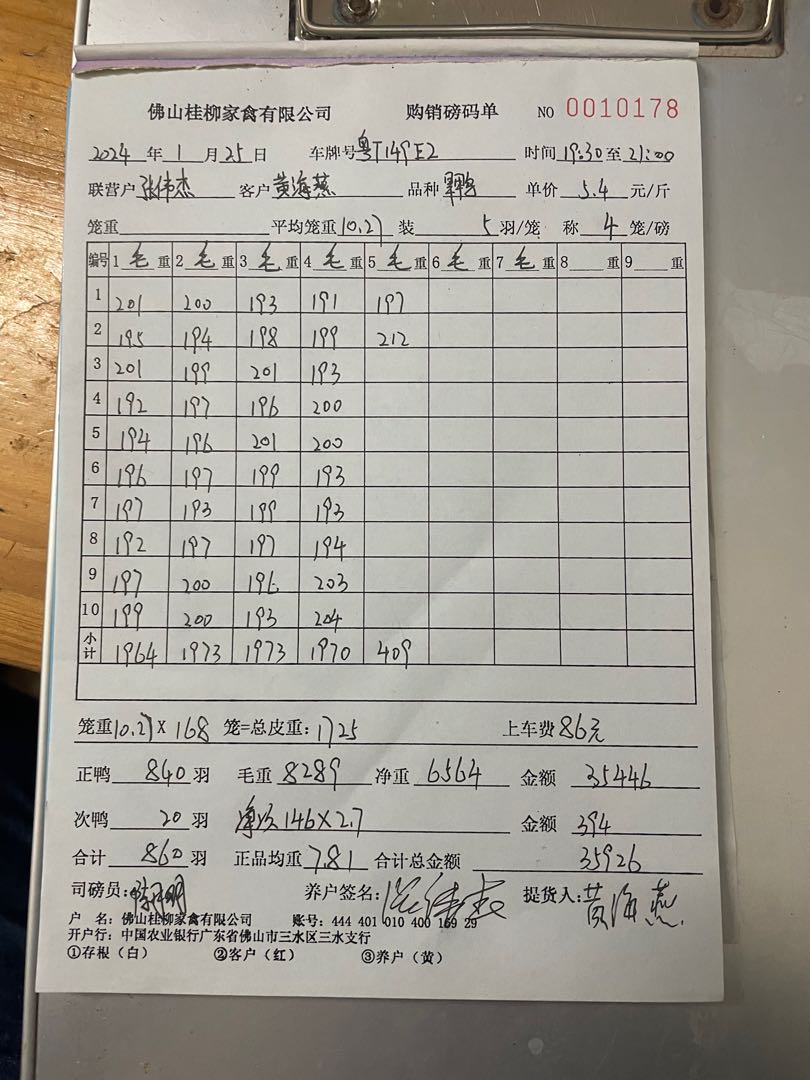 佛山桂柳家禽有限公司 购销磅码单 NO 0010178
2024 年 1 月 25 日 车牌号 粤T149E2 时间 19:30 至 21:00
联营户 张伟杰 客户 黄海燕 品种 鸭 单价 5.4 元/斤
笼重 平均笼重 10.27 装 5 羽/笼 称 4 笼/磅
编号 1 毛 重 2 毛 重 3 毛 重 4 毛 重 5 毛 重 6 毛 重 7 毛 重 8 重 9 重
1 201 200 193 191 197
2 195 194 198 199 212
3 201 199 201 193
4 192 197 196 200
5 194 196 201 200
6 196 197 199 193
7 197 193 199 193
8 192 197 197 194
9 197 200 196 203
10 199 200 193 204
小计 1964 1973 1973 1970 409
笼重 10.27 X 168 笼=总皮重: 1725 上车费 86元
正鸭 840 羽 毛重 8289 净重 6564 金额 35446
次鸭 20 羽 146X2.7 金额 394
合计 860 羽 正品均重 7.81 合计总金额 35926
司磅员: 养户签名: 张伟杰 提货人: 黄海燕
户 名: 佛山桂柳家禽有限公司 账号: 444 401 010 400 169 29
开户行: 中国农业银行广东省佛山市三水区三水支行
①存根（白） ②客户（红） ③养户（黄）